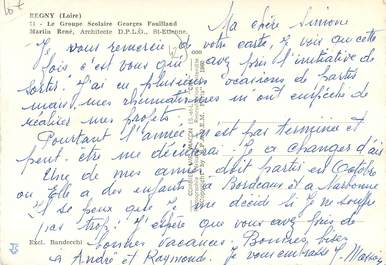 REGNY (Loire)
71 - Le Groupe Scolaire Georges Fouilland
Martin René, Architecte D.P.L.G., St-Etienne.
Ma chère Simone
Je vous remercie de votre carte, Je vois cette
fois c'est vous qui avez pris l'initiative de
sortir. J'ai eu plusieurs occasions de partir
mais mes rhumatismes m'ont empêché de
réaliser mes projets.
Pourtant l'année n'est pas terminé et
peut être me déciderai Il y a changer d'air
Une de mes amies doit partir en Octobre
ou Elle a des enfants à Bordeaux et à Narbonne
Il se peux que je me décide si je ne souffre
pas trop! J'espère que vous avez pris de
bonnes vacances. Bonnes bises
à André et Raymonde. Je vous embrasse J.
Excl. Bandecchi